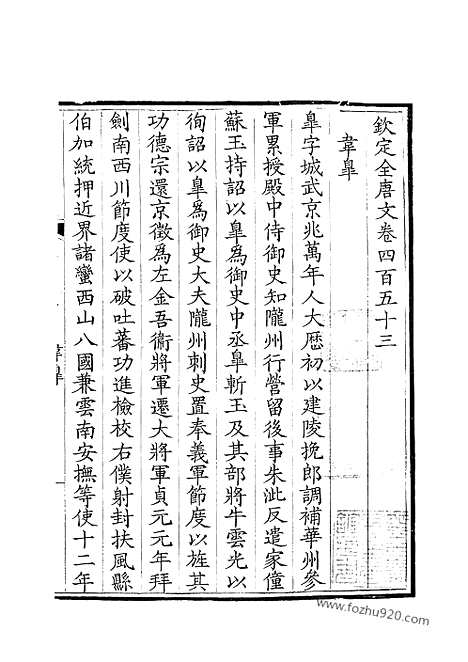 欽定全唐文卷四百五十三
韋臯
臯字城武京兆萬年人大厯初以建陵挽郎調補華州參
軍累授殿中侍御史知隴州行營留後事朱泚反遣家僮
蘇玉持詔以臯為御史中丞臯斬玉及其部將牛雲光以
徇詔以臯為御史大夫隴州刺史置奉義軍節度以旌其
功德宗還京徵為左金吾衛將軍遷大將軍貞元元年拜
劍南西川節度使以破吐蕃功進檢校右僕射封扶風縣
伯加統押近界諸蠻西山八國兼雲南安撫等使十二年
韋臯
一
www.fozhu920.com